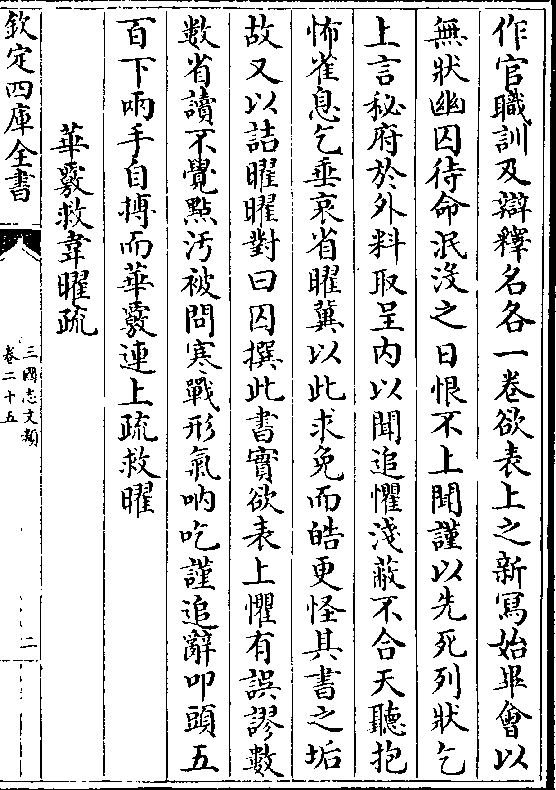 作官職訓及辯釋名各一卷欲表上之新寫始畢會以
無狀幽囚待命泯没之日恨不上聞謹以先死列狀乞
上言秘府於外料取呈内以聞追懼淺蔽不合天聽抱
怖雀息乞垂哀省曜冀以此求免而皓更怪其書之垢
故又以詰曜曜對曰囚撰此書實欲表上懼有誤謬數
数省讀不覺點污被問寒戰形氣吶吃謹追辭叩頭五
百下兩手自搏而華覈連上疏救曜
華覈救韋曜疏
欽定四庫全書
三國志文類
卷二十五
二